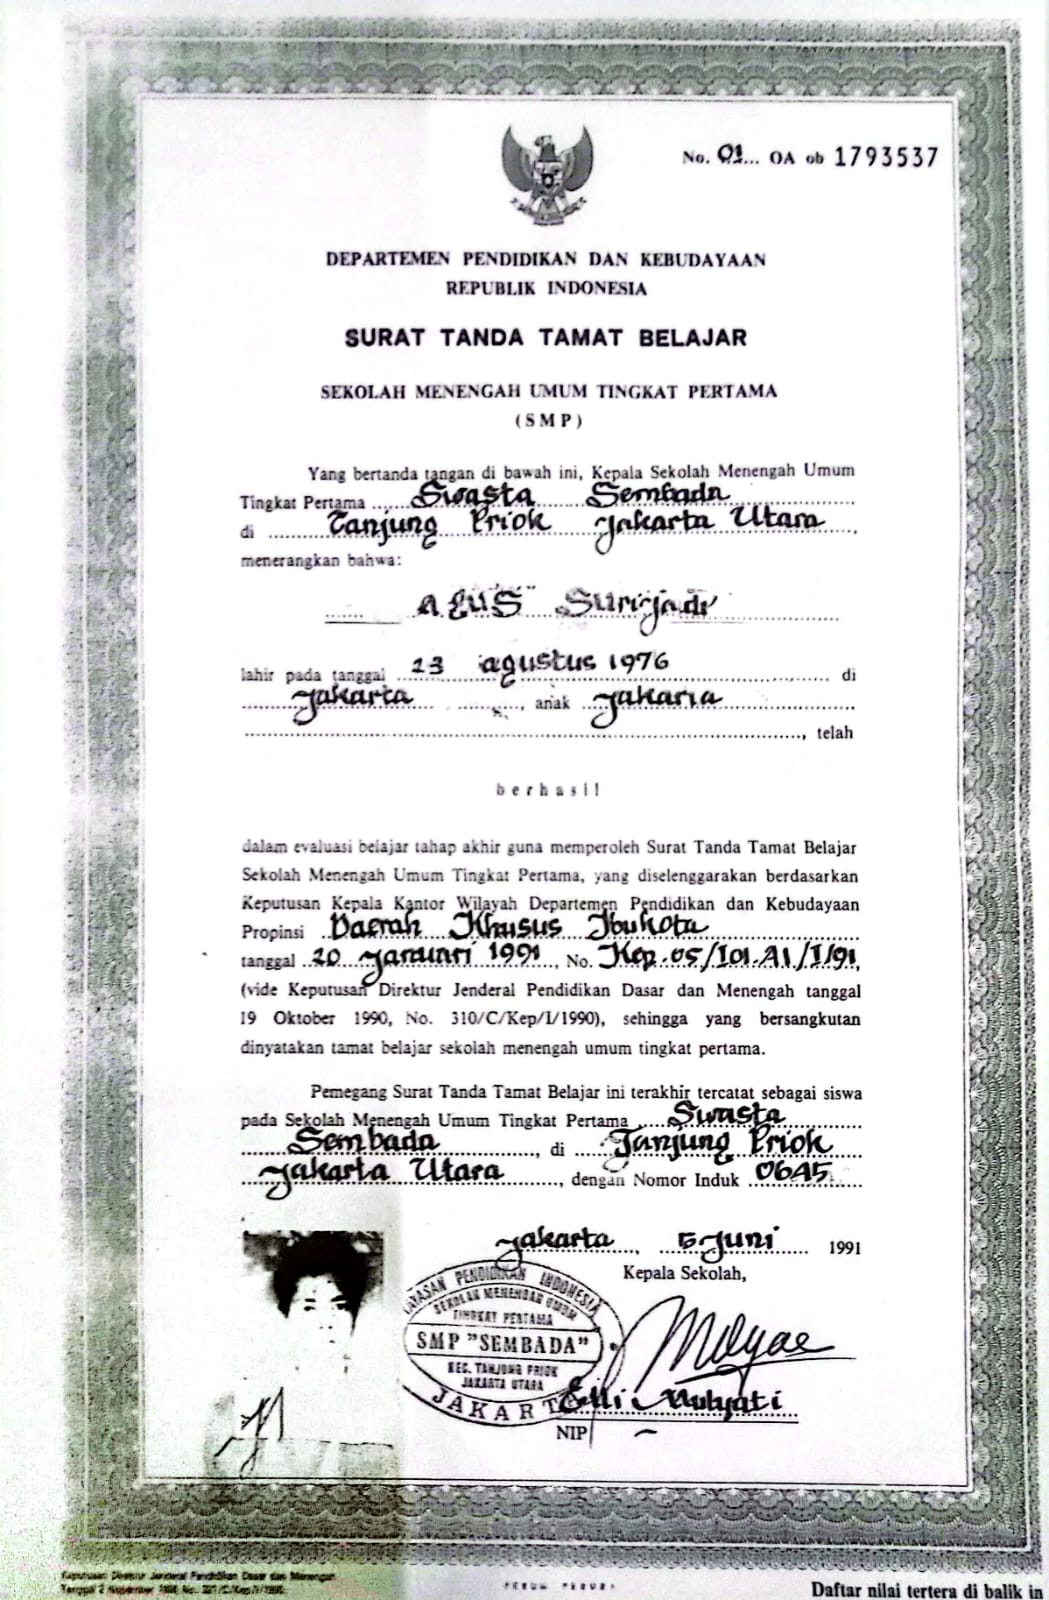 No. 01... OA ob 1793537
DEPARTEMEN PENDIDIKAN DAN KEBUDAYAAN
REPUBLIK INDONESIA
SURAT TANDA TAMAT BELAJAR
SEKOLAH MENENGAH UMUM TINGKAT PERTAMA
(SMP)
Yang bertanda tangan di bawah ini, Kepala Sekolah Menengah Umum
Tingkat Pertama Swasta Sembada
di Tanjung Priok Jakarta Utara,
menerangkan bahwa:
Agus Surirjadi
lahir pada tanggal 23 agustus 1976 di
Jakarta, anak Jakaria
, telah
berhasil
dalam evaluasi belajar tahap akhir guna memperoleh Surat Tanda Tamat Belajar
Sekolah Menengah Umum Tingkat Pertama, yang diselenggarakan berdasarkan
Keputusan Kepala Kantor Wilayah Departemen Pendidikan dan Kebudayaan
Propinsi Daerah Khusus Ibukota
tanggal 20 Januari 1991, No. Kep.05/I01.A1/I/91,
(vide Keputusan Direktur Jenderal Pendidikan Dasar dan Menengah tanggal
19 Oktober 1990, No. 310/C/Kep/I/1990), sehingga yang bersangkutan
dinyatakan tamat belajar sekolah menengah umum tingkat pertama.
Pemegang Surat Tanda Tamat Belajar ini terakhir tercatat sebagai siswa
pada Sekolah Menengah Umum Tingkat Pertama Swasta
Sembada, di Tanjung Priok
Jakarta Utara, dengan Nomor Induk 0645
Jakarta, 5 Juni 1991
Kepala Sekolah,
YAYASAN PENDIDIKAN INDONESIA
SEKOLAH MENENGAH UMUM
TINGKAT PERTAMA
SMP "SEMBADA"
KEC. TANJUNG PRIOK
JAKARTA UTARA
JAKARTA
Elli Mulyati
NIP -
Keputusan Direktur Jenderal Pendidikan Dasar dan Menengah
PERUM PERURI
Daftar nilai tertera di balik in